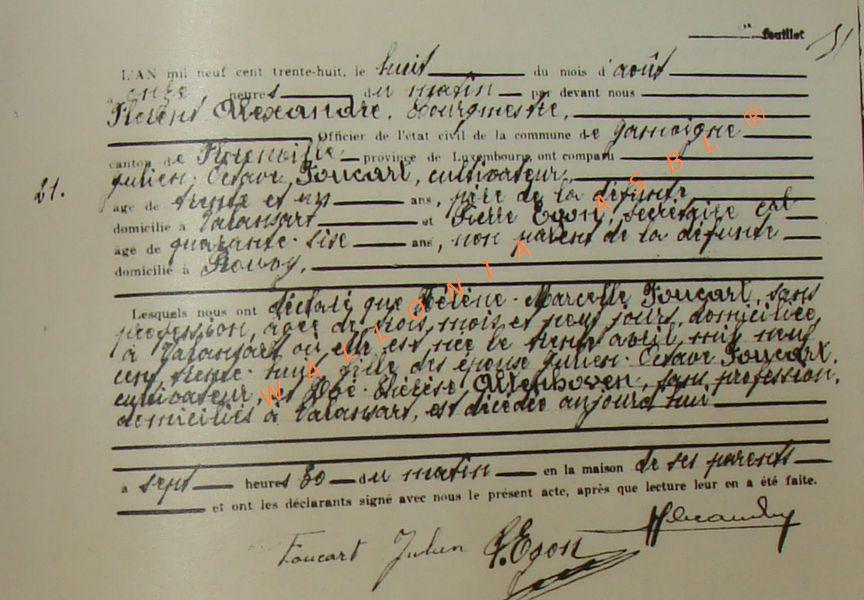 feuillet 31
L'AN mil neuf cent trente-huit, le huit du mois d'août
à onze heures du matin par devant nous
Florent Alexandre, Bourgmestre,
Officier de l'état civil de la commune de Jamoigne
canton de Florenville province de Luxembourg, ont comparu
21. Julien-Octave Foucart, cultivateur,
âgé de trente et un ans, père de la défunte
domicilié à Valansart et Pierre Egon, secrétaire cal
âgé de quarante-sise ans, non parent de la défunte
domicilié à Rouvoy,
Lesquels nous ont déclaré que Hélène-Marcelle Foucart, sans
profession, âgée de trois mois et neuf jours, domiciliée
à Valansart où elle est née le trente avril mil neuf
cent trente-huit, fille des époux Julien-Octave Foucart,
cultivateur, et Zoé-Thérèse Altenhoven, sans profession,
domiciliés à Valansart, est décédée aujourd'hui
à sept heures 30 du matin en la maison de ses parents
et ont les déclarants signé avec nous le présent acte, après que lecture leur en a été faite.
Foucart Julien P. Egon
WALLONIA ASBL ®